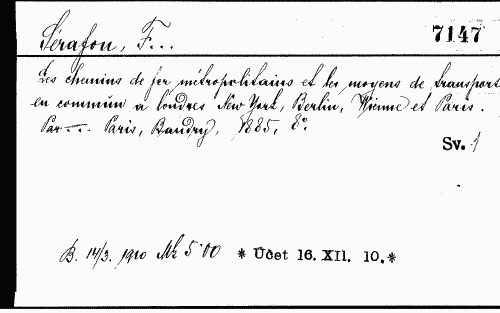 Sérafon, F... 7147
Les chemins de fer métropolitains et les moyens de transport
en commun à londres New York, Berlin, Vienne et Paris.
Par --.. Paris, Baudry, 1885, 8°.
Sv. 1
B. 14/3. 1910 Mk 5·00 * Účet 16. XII. 10.*